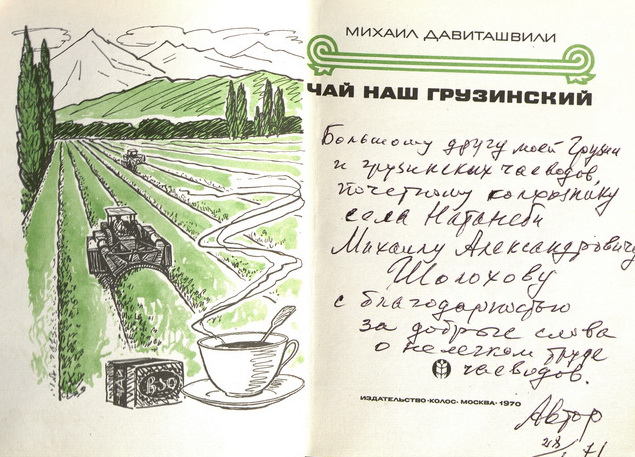 МИХАИЛ ДАВИТАШВИЛИ
ЧАЙ НАШ ГРУЗИНСКИЙ
Большому другу моей Грузии
и грузинских чаеводов,
почетному колхознику
села Натанеби
Михаилу Александровичу
Шолохову
с благодарностью
за добрые слова
о нелегком труде
чаеводов.
ИЗДАТЕЛЬСТВО «КОЛОС» МОСКВА · 1970
Автор
71
ЧАЙ